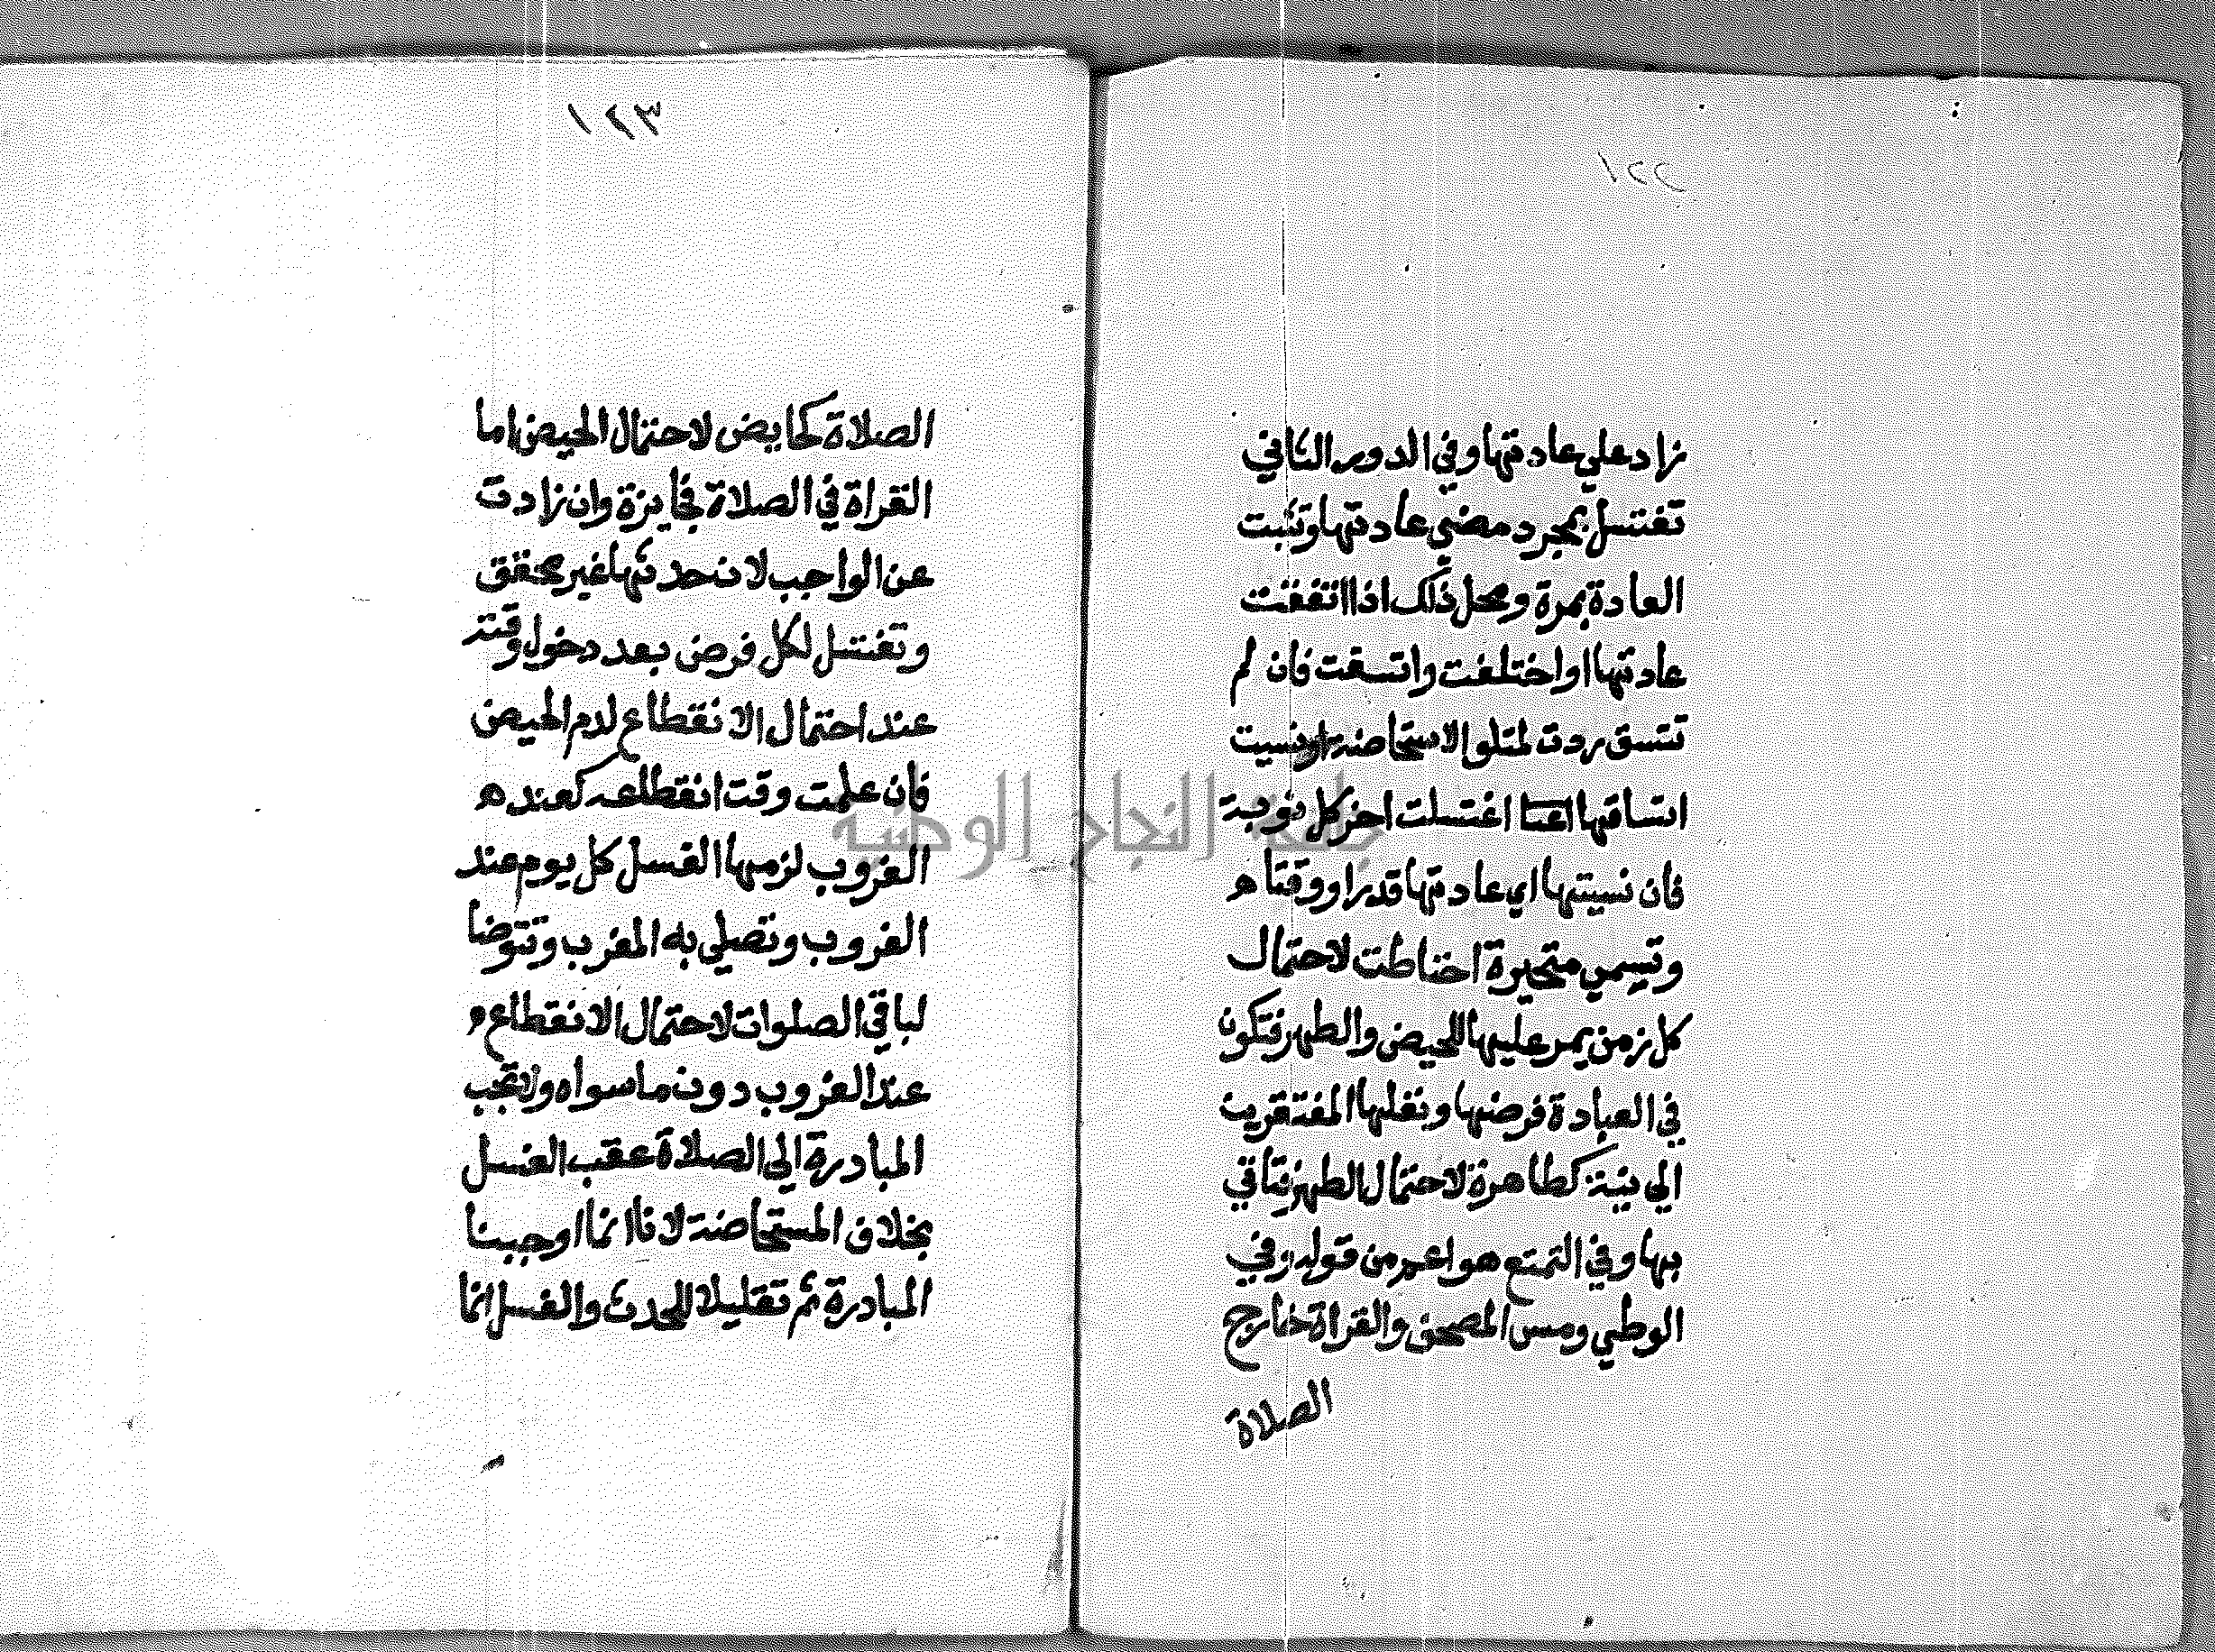 ١٢٢
زاد علي عادتها وفي الدور الثاني
تغتسل بمجرد مضي عادتها وتثبت
العادة بمرة ومحل ذلك اذا اتفقت
عادتها او اختلفت واتسقت فان لم
تتسق ردت لمتلوا الاستحاضة او نسيت
اتساقها اغتسلت اخر كل نوبة
فان نسيتها اي عادتها قدرا ووقتا ه
وتسمي متحيرة احتاطت لاحتمال
كل زمن يمر عليها للحيض والطهر فتكون
في العبادة فرضها ونفلها المفتقرين
الي نية كطاهرة لاحتمال الطهر فتاتي
بها وفي التمتع هو اعم من قوله وفي
الوطي ومس المصحف والقراة خارج
الصلاة
١٢٣
الصلاة كحايض لاحتمال الحيض اما
القراة في الصلاة فجايزة وان زادت
عن الواجب لان حدثها غير محقق
وتغتسل لكل فرض بعد دخول وقته
عند احتمال الانقطاع لدم الحيض
فان علمت وقت انقطاعه كعند ه
الغروب لزمها الغسل كل يوم عند
الغروب وتصلي به المغرب وتتوضا
لباقي الصلوات لاحتمال الانقطاع
عند الغروب دون ما سواه ولا تجب
المبادرة الي الصلاة عقب الغسل
بخلاف المستحاضة لانا انما اوجبنا
المبادرة ثم تقليلا للحدث والغسل انما
جامعة النجاح الوطنية